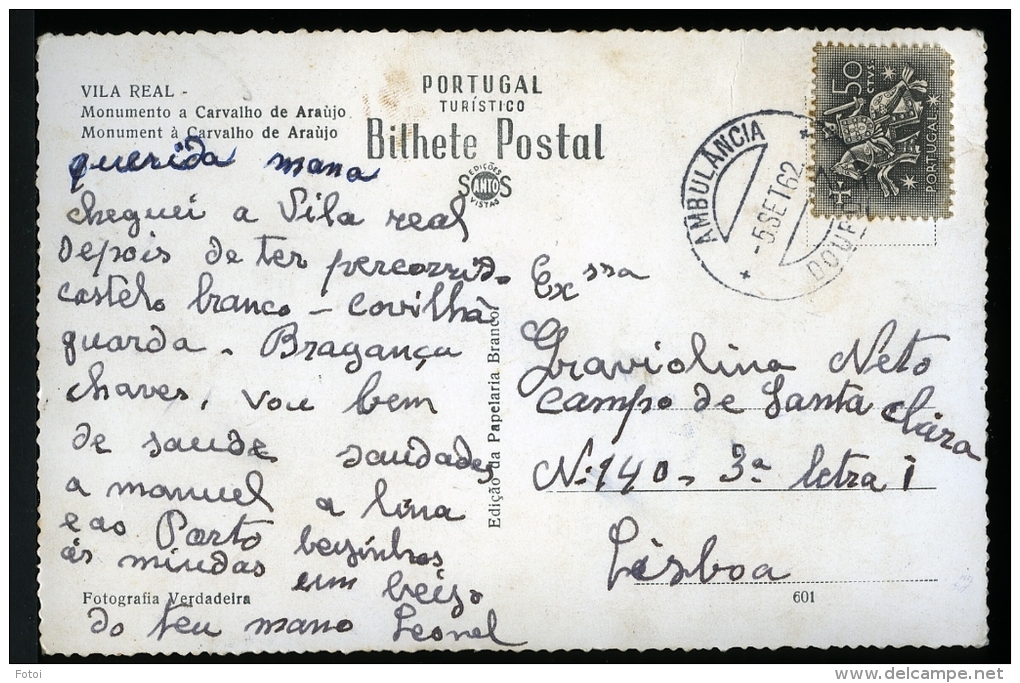 VILA REAL -
Monumento a Carvalho de Araùjo
Monument à Carvalho de Araùjo
PORTUGAL
TURÍSTICO
Bilhete Postal
EDIÇÕES
SANTOS
VISTAS
AMBULÂNCIA
-5.SET.62
DOURO
50
CTVS.
PORTUGAL
querida mana
cheguei a Vila real
depois de ter percorrido
castelo branco - covilhà
guarda - Bragança
chaves, vou bem
de saude saudades
a manuel a lina
e ao Porto beijinhos
ás miudas um beijo
do teu mano Leonel
Edição da Papelaria Branco
Ex ssa
Graviolina Neto
campo de Santa clara
Nº 140 - 3ª letra i
Lisboa
Fotografia Verdadeira
601
Fotoi
www.delcampe.net